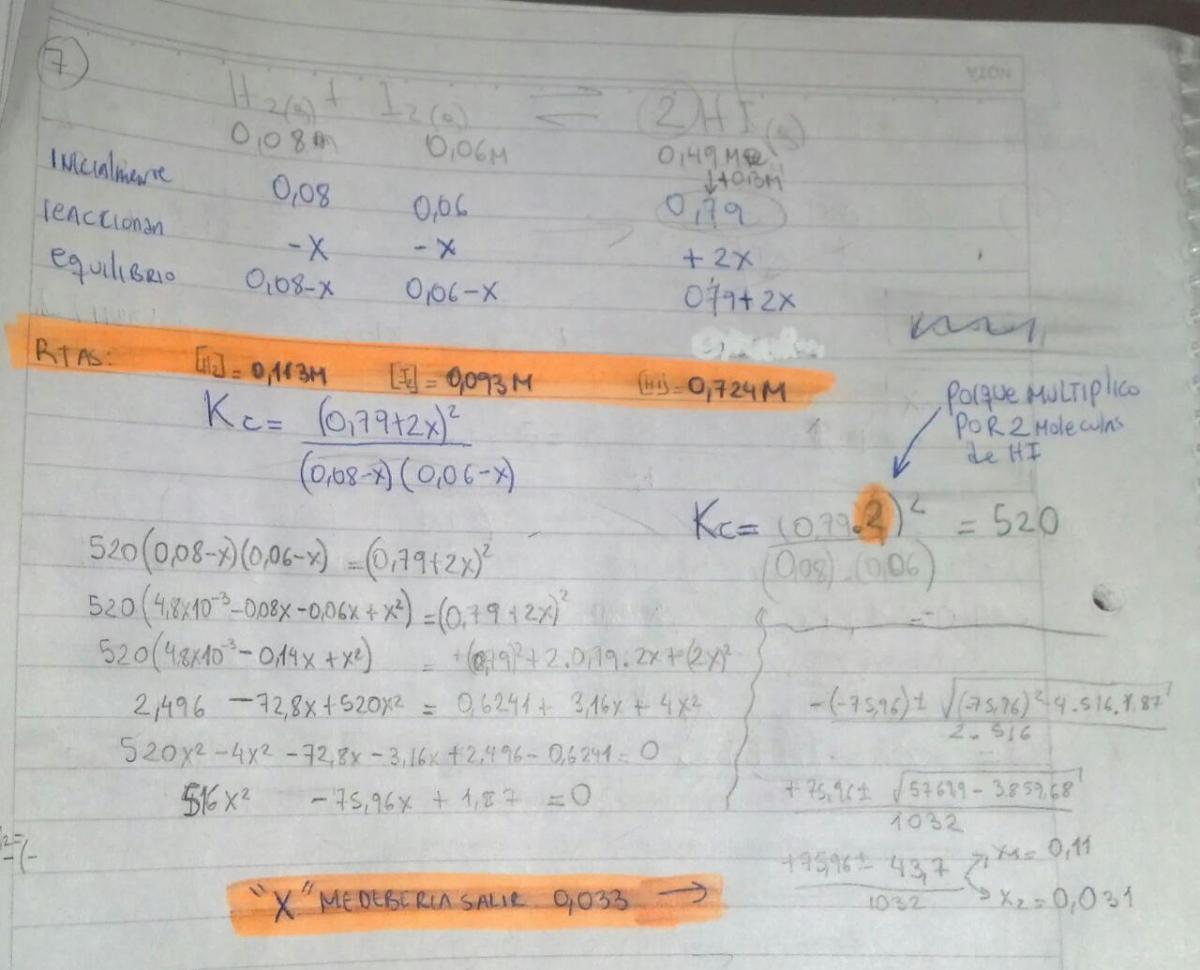 7
NOTA
H2(g) + I2(g) ⇌ (2)HI(g)
0,08M 0,06M 0,49M
↓+0,3M
INICIALMENTE 0,08 0,06 0,79
REACCIONAN -X -X +2X
EQUILIBRIO 0,08-X 0,06-X 0,79+2X
RTAS: [H2]=0,113M [I2]=0,093M [HI]=0,724M
Kc= (0,79+2x)² / (0,08-x)(0,06-x)
PORQUE MULTIPLICO
POR 2 MOLECULAS
DE HI
Kc= (0,79.2)² / (0,08).(0,06) = 520
520(0,08-x)(0,06-x) =(0,79+2x)²
520(4,8x10⁻³-0,08x-0,06x+x²)=(0,79+2x)²
520(4,8x10⁻³-0,14x+x²) = +(0,79)²+2.0,79.2x+(2x)²
2,496 -72,8x+520x² = 0,6241+ 3,16x+ 4x²
520x²-4x²-72,8x-3,16x+2,496-0,6241=0
516x² -75,96x + 1,87 =0
-(-75,96)± √(-75,96)²-4.516.1,87 / 2.516
+75,96± √57699-3859,68 / 1032
+75,96± 43,7 / 1032
x1=0,11
x2=0,031
"X" ME DEBERIA SALIR 0,033 →